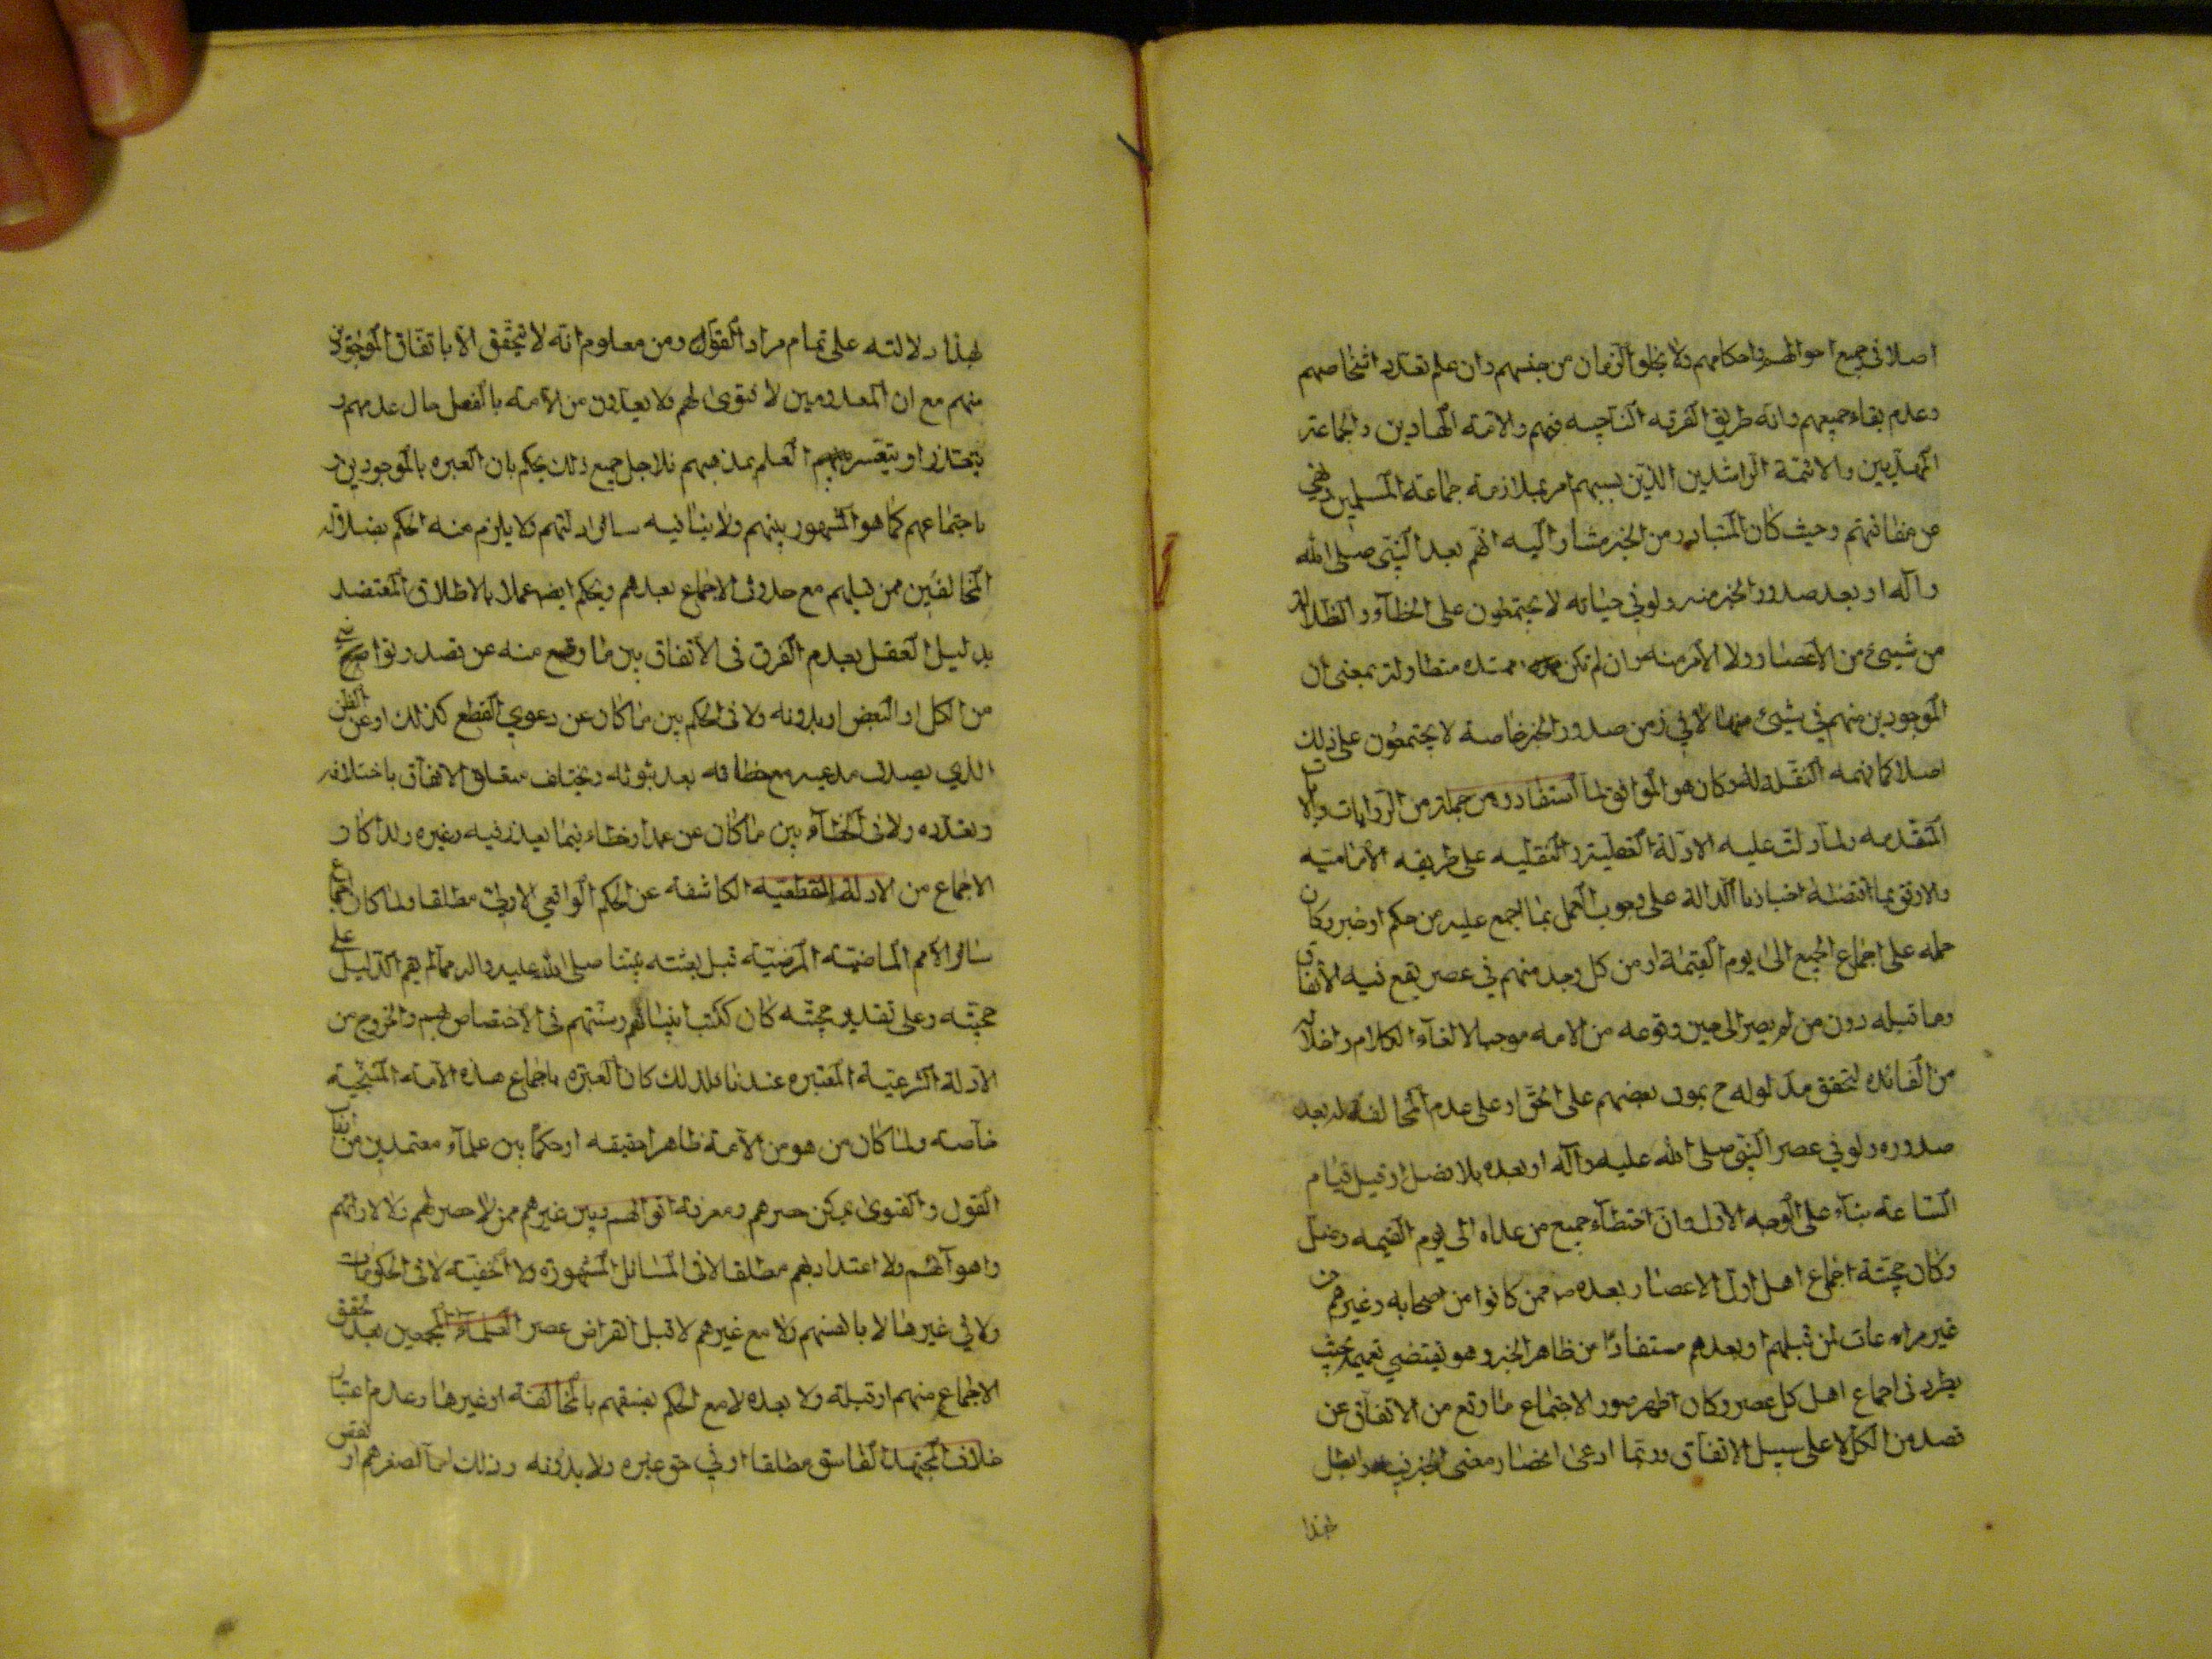 اصلا في جميع احوالهم في احكامهم ولا يخلو الزمان من جنسهم وان علم تعدد اشخاصهم
وعدم بقاء جميعهم وانه طريق الفرقه الناجيه فهم والامة الهادين والجماعة
المهديين والائمة الراشدين الذين بسببهم امر بملازمة جماعة المسلمين ونهي
عن مفارقتهم وحيث كان المتبادر من الخبر مشار اليه انهم بعد النبي صلى الله
وآله او بعد صدور الخبر منه ولو في حياته لا يجتمعون على الخطآء والضلالة
من شيئ من الاعصار ولا الازمنه وان لم تكن ممتده متطاولة بمعنى ان
الموجودين منهم في شيئ منها لا في زمن صدور الخبر خاصة لا يجتمعون على ذلك
اصلا كما فهمه النقلة له وكان هو الموافق لما استفادوه من جملة من الروايات والآيات
المتقدمه ولما دلت عليه الادلة العقلية والنقليه على طريقه الاماميه
والاوفق بما اقتضته اخبارنا الدالة على وجوب العمل بما اجمع عليه من حكم او خبر وكان
حمله على اجماع الجميع الى يوم القيمة او من كل وجد منهم في عصر يقع فيه الاتفاق
وما قبله دون من لم يصر الى حين وقوعه من الامه موجبا لالغآء الكلام واخلائه
من الفائده لتحقق مدلوله ح بموت بعضهم على الحق او على عدم المخالفة له بعد
صدوره ولو في عصر النبي صلى الله عليه وآله او بعده بلا فصل او قبيل قيام
الساعة بناء على الوجه الاول وان اخطآء جميع من عداه الى يوم القيمه وضل
وكان حجية اجماع اهل اول الاعصار بعده ص ممن كانوا من اصحابه وغيرهم من
غير مراعات لمن قبلهم او بعدهم مستفادا من ظاهر الخبر وهو يقتضي تعميمه بحيث
يطرد في اجماع اهل كل عصر وكان اظهر صور الاجتماع ما وقع من الاتفاق عن
قصد من الكل لا على سبيل الاتفاق وربما ادعى انحصار معنى الخبر فيه وابطل
لهذا
لهذا دلالته على تمام مراد القوم ومن معلوم انه لا يتحقق الا باتفاق الموجودين
منهم مع ان المعدومين لا فتوى لهم ولا يعدون من الامة بالفعل حال عدمهم و
يتعذر او يتعسر العلم بمذهبهم فلاجل جميع ذلك يحكم بان العبره بالموجودين و
باجتماعهم كما هو المشهور بينهم ولا ينافيه سائر ادلتهم ولا يلزم منه الحكم بضلالة
المخالفين ممن قبلهم مع حدوث الاجماع بعدهم ويحكم ايضا عملا بالاطلاق المعتضد
بدليل العقل بعدم الفرق في الاتفاق بين ما وقع منه عن قصد وتواضع
من الكل او البعض او بدونه ولا في الحكم بين ما كان عن دعوي القطع كذلك او عن الظن
الذي يصدق مدعيه مع خطائه بعد ثبوته ويختلف متعلق الاتفاق باختلافه
وتعدده ولا في الخطآء بين ما كان عن عمد او خطاء فيما يعذر فيه وغيره ولذا كان
الاجماع من الادلة القطعية الكاشفة عن الحكم الواقعي الاولي مطلقا ولما كان اجماع
سائر الامم الماضية المرضية قبل بعثته نبينا صلى الله عليه وآله مما لم يقم الدليل على
حجيته وعلى تقدير حجيته كان ككتب انبيائهم وسنتهم في الاختصاص بهم والخروج من
الادلة الشرعية المعتبره عندنا فلذلك كان العبرة باجماع هذه الامة المنتجبة
خآصة ولما كان من هو من الامة ظاهرا حقيقه او حكما بين علمآء معتمدين من ارباب
القول والفتوى يمكن حصرهم ومعرفة اقوالهم وبين غيرهم ممن لا حصر لهم ولا لارائهم
واهوآئهم ولا اعتداد بهم مطلقا لا في المسائل المشهوره ولا الخفية لا في الحكومات
ولا في غيرها لا بانفسهم ولا مع غيرهم لا قبل انقراض عصر العلمآء المجمعين بعد تحقق
الاجماع منهم او قبلة ولا بعده لا مع الحكم بفسقهم بالمخالفة او غيرها وعدم اعتبار
خلاف المجتهد الفاسق مطلقا او في حق غيره ولا بدونه وذلك اما لصغرهم او نقص